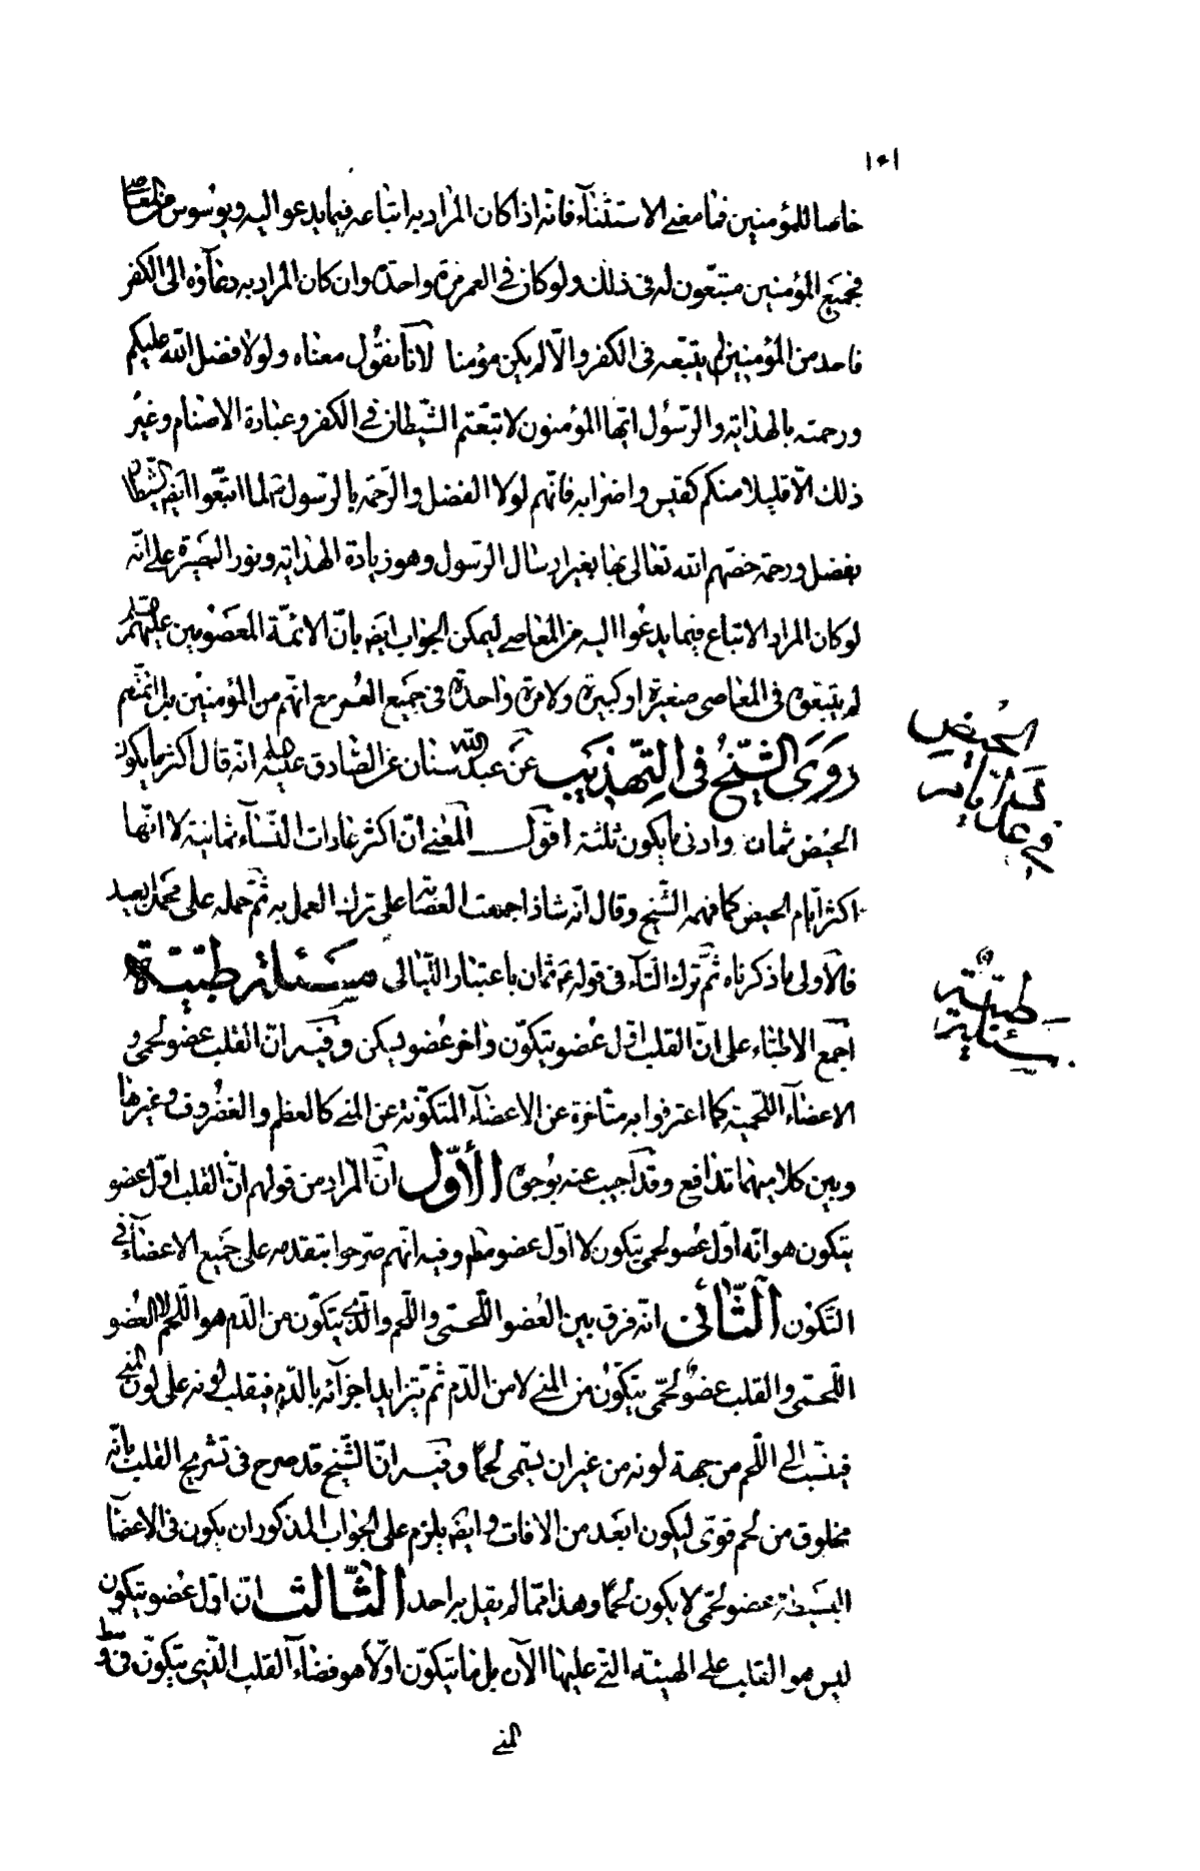 ١٥١
خاصا للمؤمنين فما معنى الاستثناء فانه اذا كان المراد به اتباعه فيما يدعو اليه ويوسوس من المعاصى
فجميع المؤمنين متبعون له فى ذلك ولو كان فى العمر مرة واحدة وان كان المراد به دعاؤه الى الكفر
فاحد من المؤمنين لم يتبعه فى الكفر والا لم يكن مؤمنا لانا نقول معناه ولولا فضل الله عليكم
ورحمته بالهداية والرسول ايها المؤمنون لاتبعتم الشيطان فى الكفر وعبادة الاصنام وغير
ذلك الا قليلا منكم كقيس واضرابه فانهم لولا الفضل والرحمة بالرسول لما اتبعوا ايضا الشيطان
بفضل ورحمة خصهم الله تعالى بها بغير ارسال الرسول وهو زيادة الهداية ونور البصيرة على انه
لو كان المراد الاتباع فيما يدعوا اليه من المعاصى ليمكن الجواب ايضا بان الائمة المعصومين عليهم السلم
لم يتبعوه فى المعاصى صغيرة او كبيرة ولا مرة واحدة فى جميع العمر مع انهم من المؤمنين بل ائمتهم
روى الشيخ فى التهذيب عن عبد الله سنان عن الصادق عليه السلم انه قال اكثر ما يكون
الحيض ثمان وادنى ما يكون ثلثة اقول المعنى ان اكثر عادات النساء ثمانية لا انها
اكثر ايام الحيض كما فهمه الشيخ وقال انه شاذ اجمعت العصابة على ترك العمل به ثم حمله على محمل بعيد
فالاولى ما ذكرناه ثم ترك التاء فى قوله ع ثمان باعتبار الليالى مسئلة طبيّة
اجمع الاطباء على ان القلب اول عضو يتكون واخر عضو يسكن وفيه ان القلب عضو لحمى و
الاعضاء اللحمية كما اعترفوا به متاخرة عن الاعضاء المتكونة عن المنى كالعظم والغضروف وغيرها
وبين كلاميهما تدافع وقد اجيب عنه بوجوه الاول ان المراد من قولهم ان القلب اول عضو
يتكون هو انه اول عضو لحمى يتكون لا اول عضو مطلقا وفيه انهم صرحوا بتقدمه على جميع الاعضاء فى
التكون الثانى انه فرق بين العضو اللحمى واللحم والذى يتكون من الدم هو اللحم لا العضو
اللحمى والقلب عضو لحمى يتكون من المنى لا من الدم ثم تتزايد اجزائه بالدم فيغلب لونه على لون المنى
فينسب الى اللحم من جهة لونه من غير ان يسمى لحما وفيه ان الشيخ قد صرح فى تشريح القلب بانه
مخلوق من لحم قوى ليكون ابعد من الافات وايضا يلزم على الجواب المذكور ان يكون فى الاعضاء
البسيطة عضو لحمى لا يكون لحما وهذا مما لم يقل به احد الثالث ان اول عضو يتكون
ليس هو القلب على الهيئة التى عليها الان بل ما يتكون اولا هو فضاء القلب الذى يتكون فى وسط
المنى
الحيض
فى عدد ايام
مسئلة
طبية